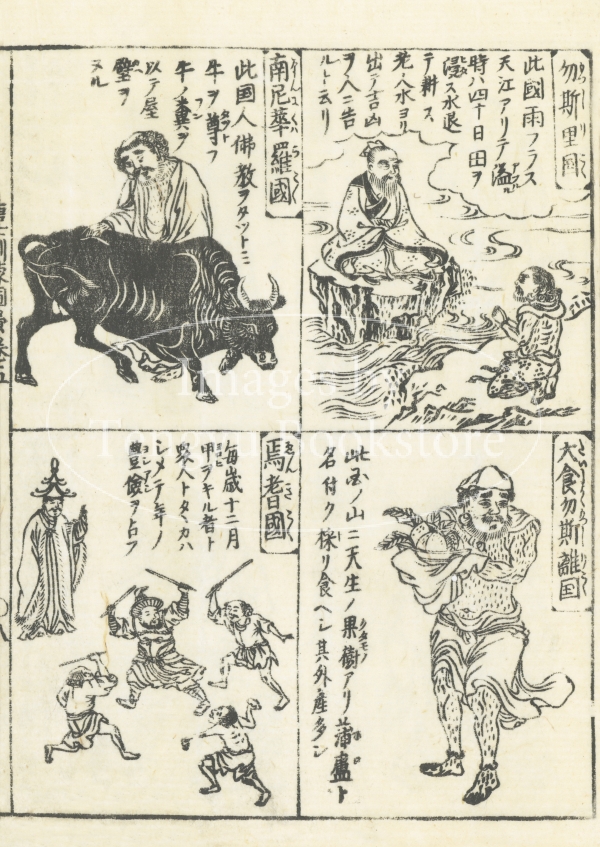 勿斯里國
此國雨フラス
天江アリテ溢ル
時ハ四十日田ヲ
浸ス水退
テ耕ス
老人水ヨリ
出テ吉凶
ヲ人ニ告
ルト云リ
南尼華羅國
此国人佛教ヲタットニ
牛ヲ尊フ
牛ノ糞ヲ
以テ屋
壁ヲ
ヌル
大食勿斯離国
此国ノ山ニ天生ノ果樹アリ蒲蘆ト
名付ク採リ食ヘシ其外産多シ
焉耆國
每歳十二月
甲ヲキル者ト
シメテ年ノ
豊儉ヲトフ
Images by
Tamatu Bookstore